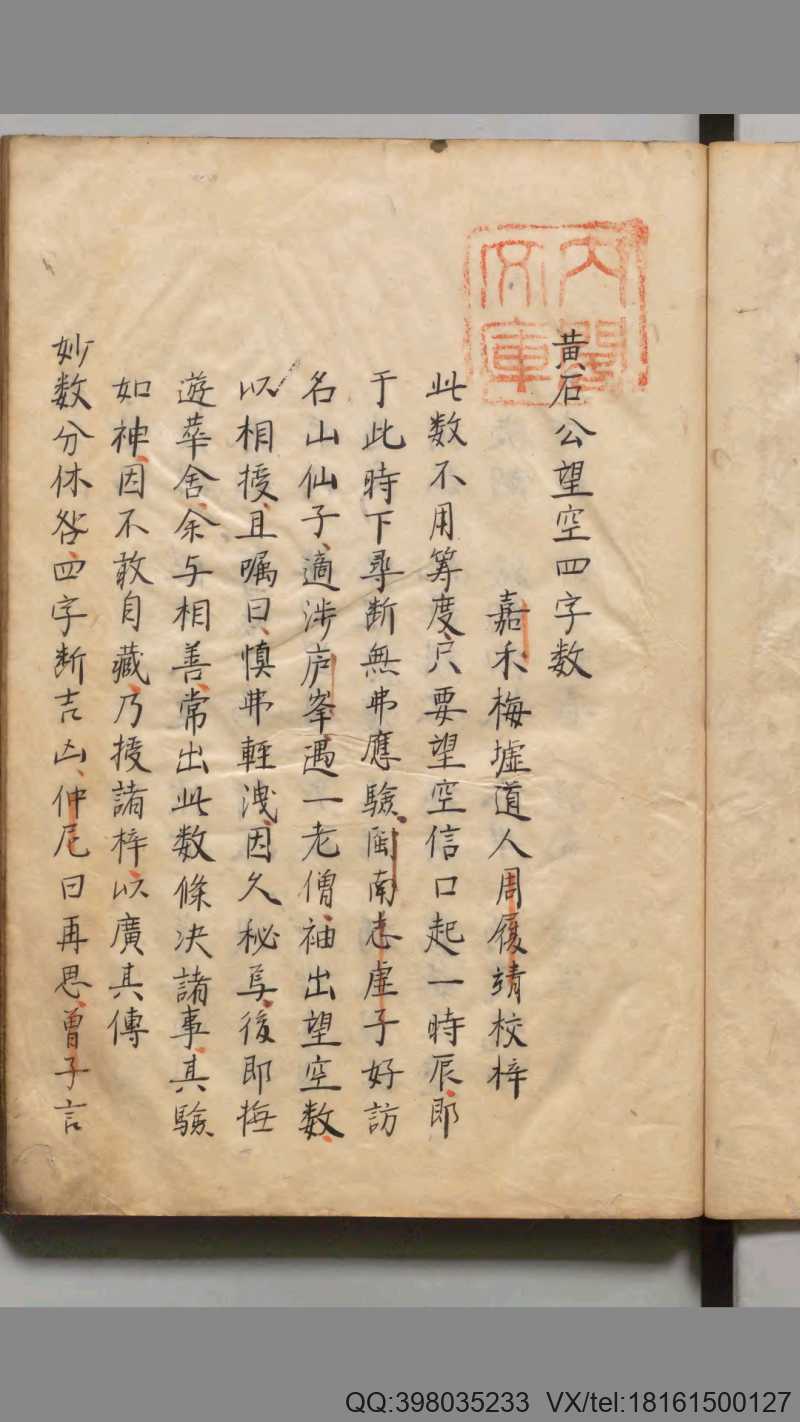 黄石公望空四字数
嘉禾梅墟道人周履靖校梓
此数不用筭度只要望空信口起一時辰即
于此時下尋断無弗應驗閩南志虚子好訪
名山仙子適渉庐峯遇一老僧袖出望空数
以相授且嘱曰慎弗輕洩因久秘焉後即梅
遊華舎余与相善常出此数條决諸事其驗
如神因不敢自藏乃授諸梓以廣其傳
妙数分休咎四字断吉凶仲尼曰再思曽子言
内閣
文庫
QQ:398035233 VX/tel:18161500127